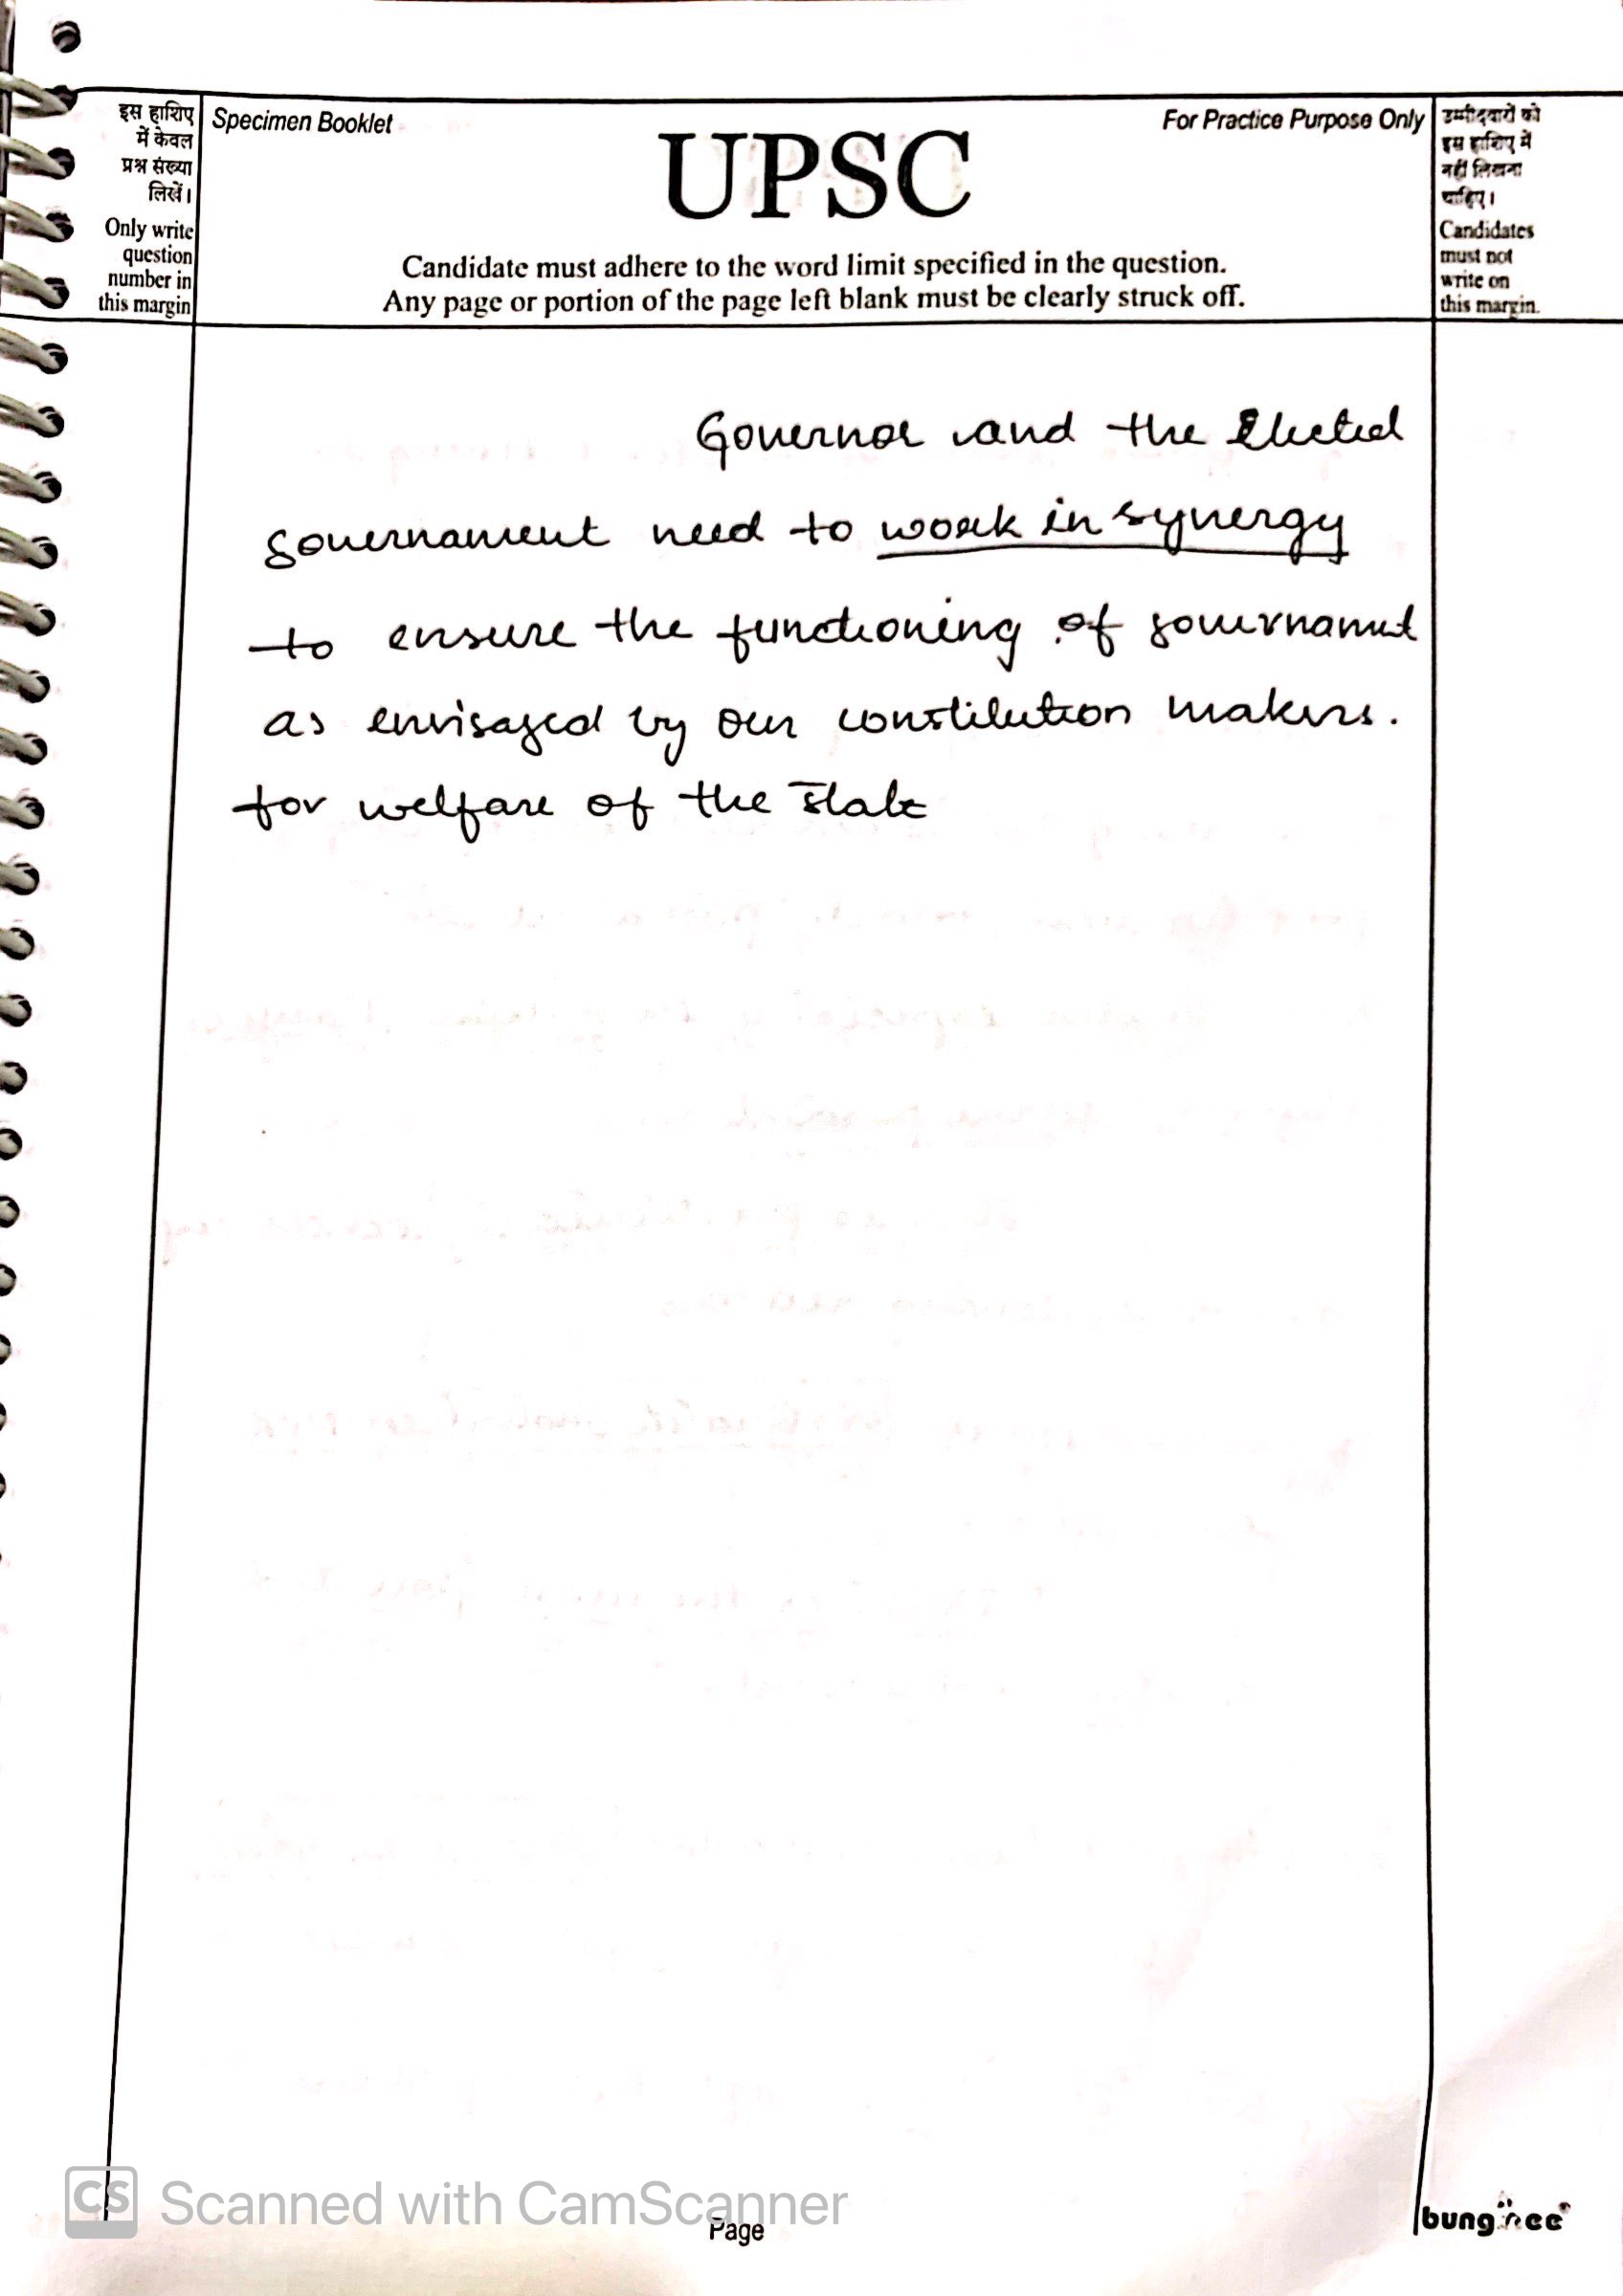 इस हाशिए
में केवल
प्रश्न संख्या
लिखें।
Only write
question
number in
this margin
Specimen Booklet
For Practice Purpose Only
UPSC
Candidate must adhere to the word limit specified in the question.
Any page or portion of the page left blank must be clearly struck off.
उम्मीदवारों को
इस हाशिए में
नहीं लिखना
चाहिए।
Candidates
must not
write on
this margin.
Governor and the Elected
governament need to work in synergy
to ensure the functioning of governament
as envisaged by our constitution makers.
for welfare of the state
CS Scanned with CamScanner
Page